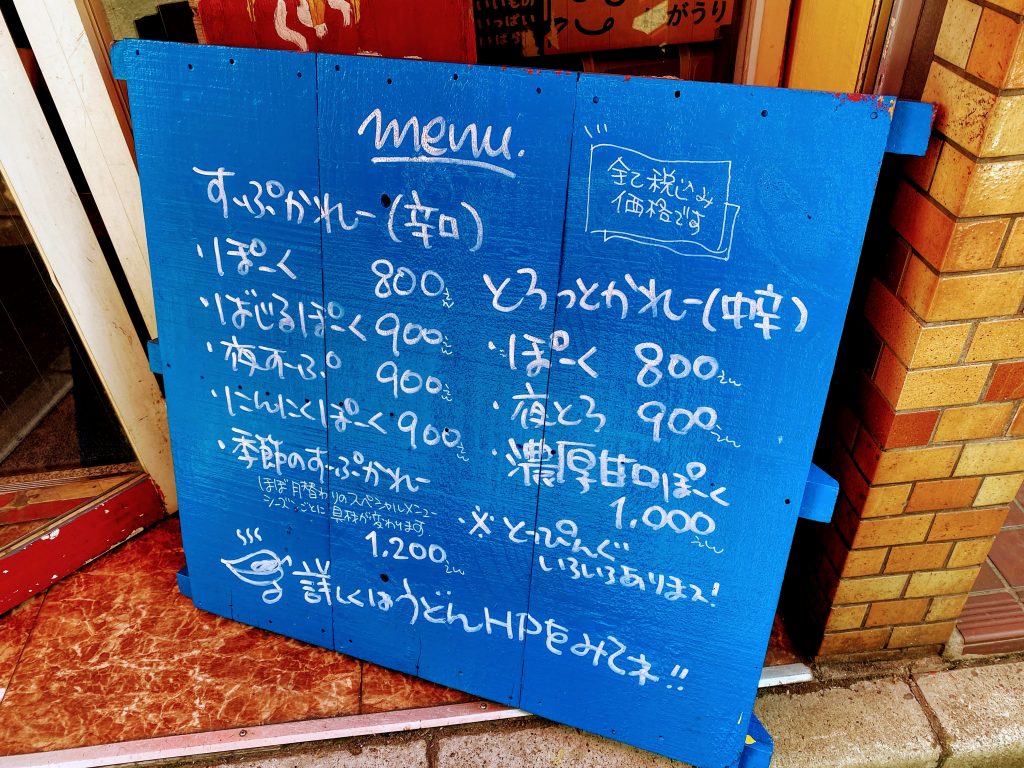 いいもの
いっぱい
いっぱい
がうり
menu.
全て税込み
価格です
すーぷかれー(辛口)
・ぽーく 800えん
・ばじるぽーく 900えん
・夜すーぷ 900えん
・にんにくぽーく 900えん
・季節のすーぷかれー
ほぼ月替わりのスペシャルメニュー
シーズンごとに具材が変わります
1.200えん
とろっとかれー(中辛)
・ぽーく 800えん
・夜とろ 900えん
・濃厚甘口ぽーく
1.000えん
・※とっぴんぐ
いろいろあります!
詳しくはうどんHPをみてネ!!